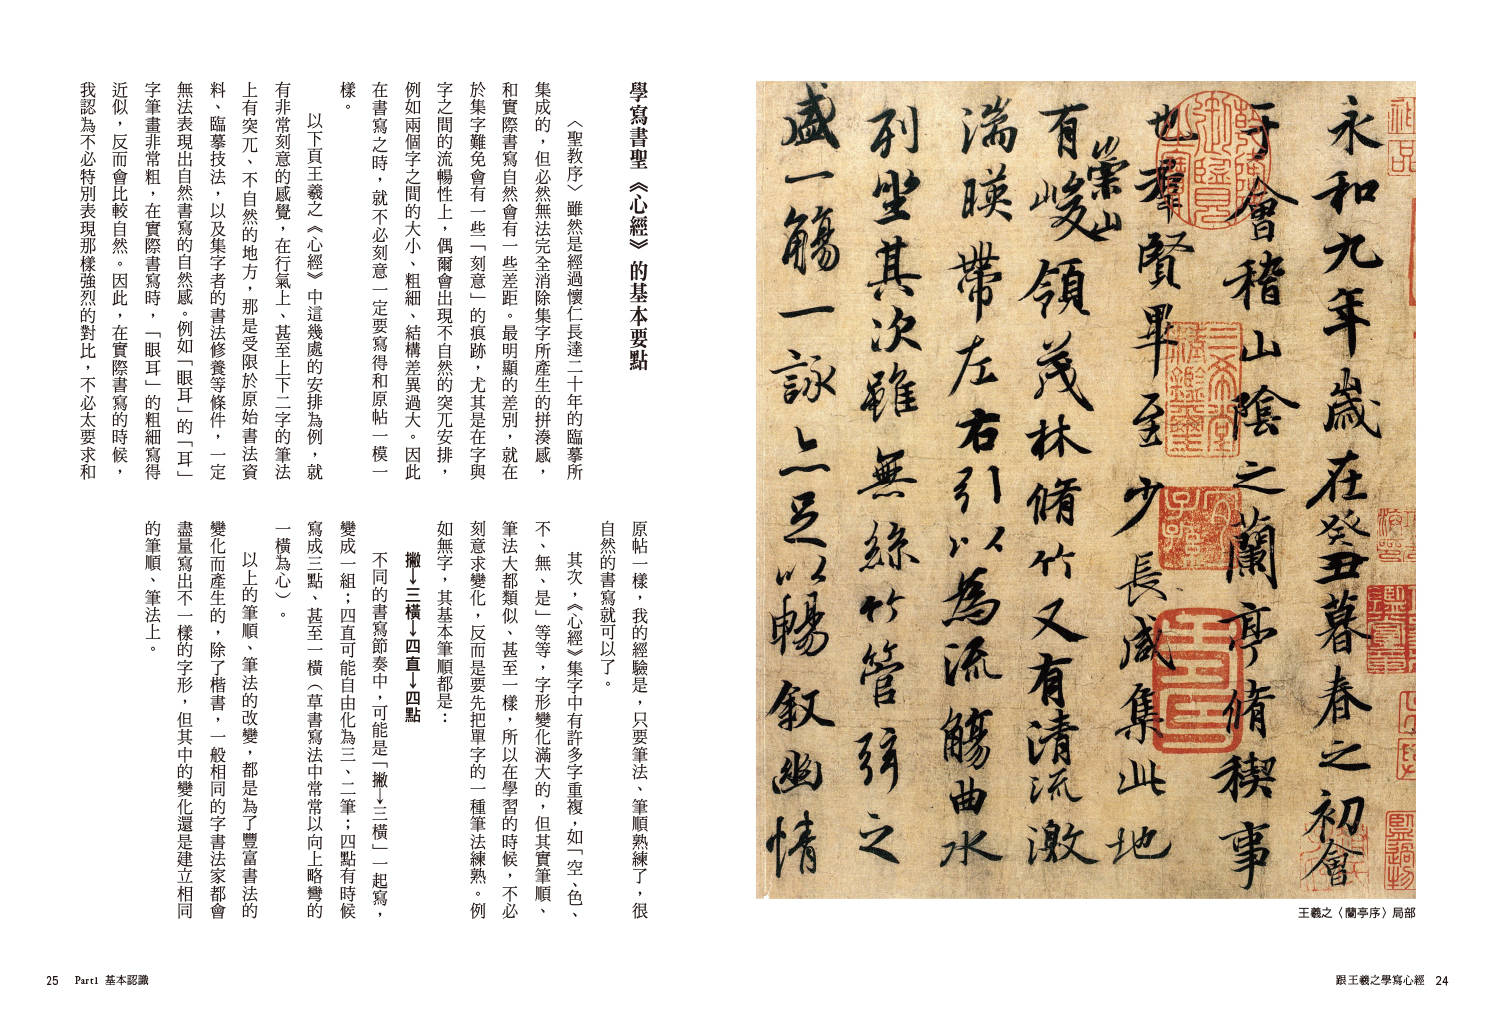 永和九年歲在癸丑暮春之初會
于會稽山陰之蘭亭脩稧事
也羣賢畢至少長咸集此地
崇山
有峻領茂林脩竹又有清流激
湍暎帶左右引以為流觴曲水
列坐其次雖無絲竹管弦之
盛一觴一詠亦足以暢敘幽情
三希堂精鑑璽
宜子孫
王羲之〈蘭亭序〉局部
跟王羲之學寫心經 24
學寫書聖《心經》的基本要點
〈聖教序〉雖然是經過懷仁長達二十年的臨摹所
集成的，但必然無法完全消除集字所產生的拼湊感，
和實際書寫自然會有一些差距。最明顯的差別，就在
於集字難免會有一些「刻意」的痕跡，尤其是在字與
字之間的流暢性上，偶爾會出現不自然的突兀安排，
例如兩個字之間的大小、粗細、結構差異過大。因此
在書寫之時，就不必刻意一定要寫得和原帖一模一
樣。
以下頁王羲之《心經》中這幾處的安排為例，就
有非常刻意的感覺，在行氣上、甚至上下二字的筆法
上有突兀、不自然的地方，那是受限於原始書法資
料、臨摹技法，以及集字者的書法修養等條件，一定
無法表現出自然書寫的自然感。例如「眼耳」的「耳」
字筆畫非常粗，在實際書寫時，「眼耳」的粗細寫得
近似，反而會比較自然。因此，在實際書寫的時候，
我認為不必特別表現那樣強烈的對比，不必太要求和
原帖一樣，我的經驗是，只要筆法、筆順熟練了，很
自然的書寫就可以了。
其次，《心經》集字中有許多字重複，如「空、色、
不、無、是」等等，字形變化滿大的，但其實筆順、
筆法大都類似、甚至一樣，所以在學習的時候，不必
刻意求變化，反而是要先把單字的一種筆法練熟。例
如無字，其基本筆順都是：
撇→三橫→四直→四點
不同的書寫節奏中，可能是「撇→三橫」一起寫，
變成一組；四直可能自由化為三、二筆；四點有時候
寫成三點、甚至一橫（草書寫法中常常以向上略彎的
一橫為心）。
以上的筆順、筆法的改變，都是為了豐富書法的
變化而產生的，除了楷書，一般相同的字書法家都會
盡量寫出不一樣的字形，但其中的變化還是建立相同
的筆順、筆法上。
25 Part1 基本認識